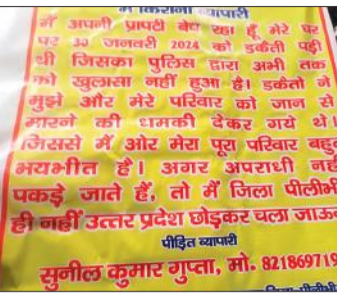 मैं किराना व्यापारी
मैं अपनी प्रापर्टी बेच रहा हूँ मेरे घर
पर 30 जनवरी 2024 को डकैती पड़ी
थी जिसका पुलिस द्वारा अभी तक
कोई खुलासा नहीं हुआ है। डकैतो ने
मुझे और मेरे परिवार को जान से
मारने की धमकी देकर गये थे।
जिससे मैं, ओर मेरा पूरा परिवार बहु
भयभीत है। अगर अपराधी नह
पकड़े जाते हैं, तो मैं जिला पीलीभी
ही नहीं उत्तर प्रदेश छोड़कर चला जाऊ
पीड़ित व्यापारी
सुनील कुमार गुप्ता, मो. 821869719